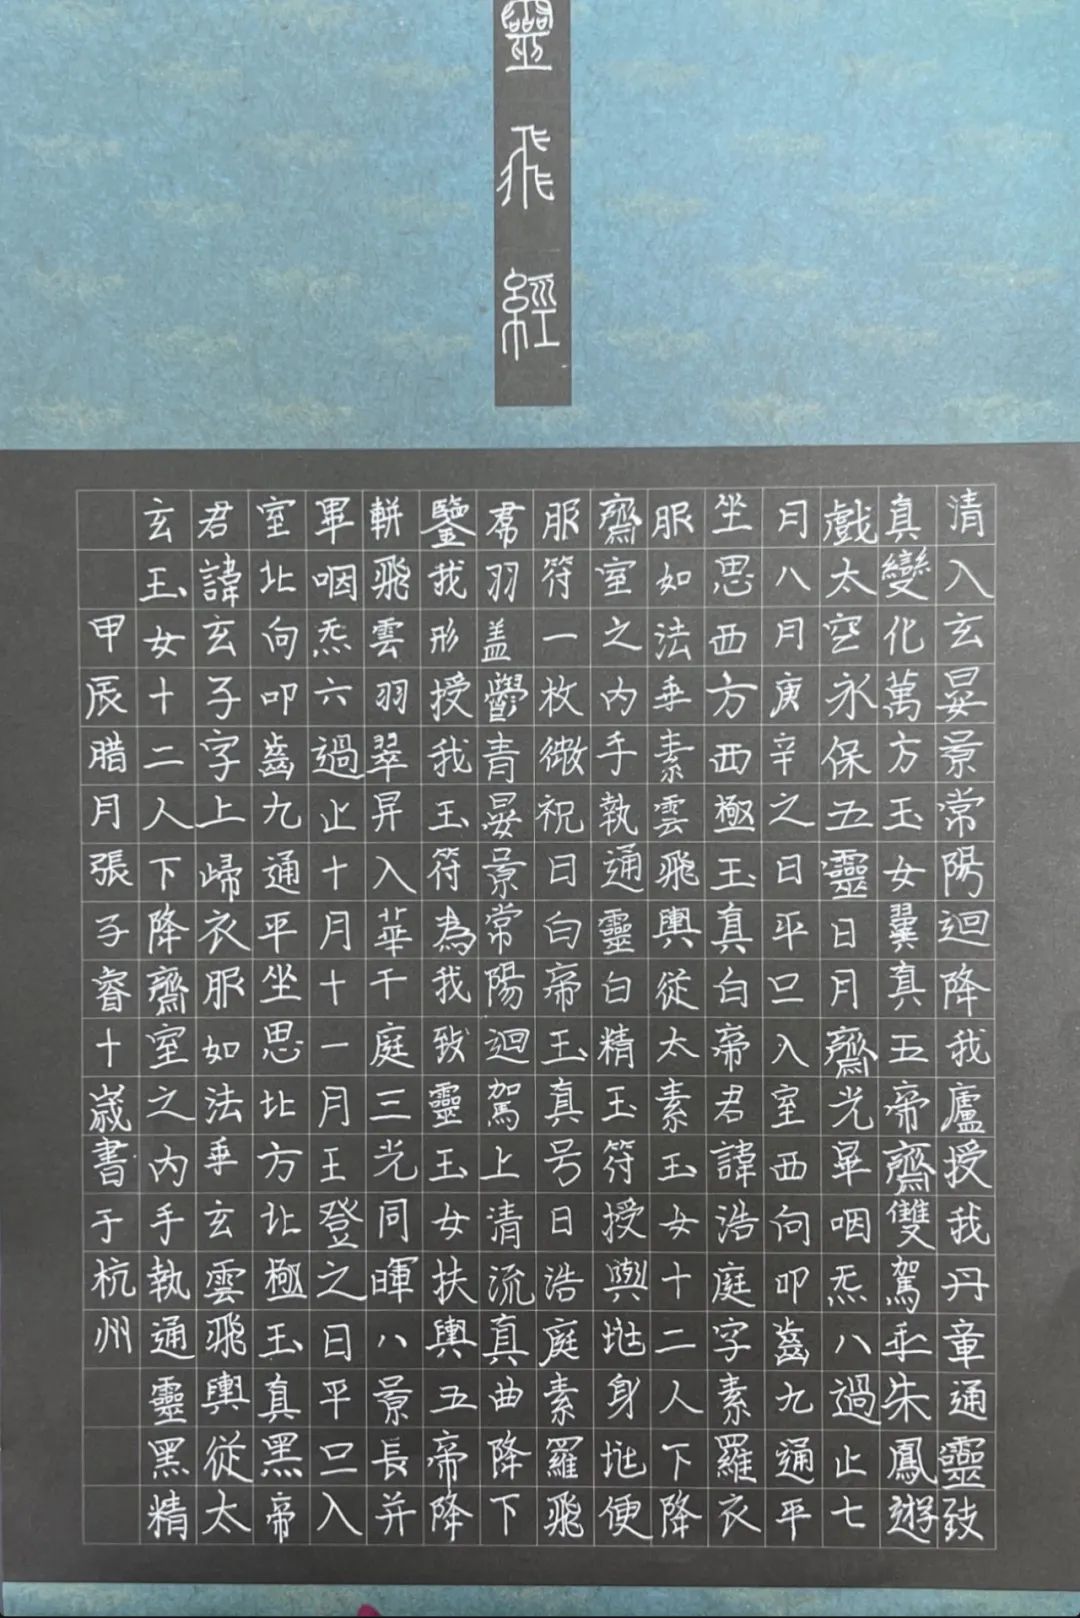 靈飛經
清入玄晏景常陽迴降我廬授我丹章通靈致
真變化萬方玉女翼真五帝齋雙駕乘朱鳳遊
戲太空永保五靈日月齋光畢咽炁八過止七
月八月庚辛之日平旦入室西向叩齒九通平
坐思西方西極玉真白帝君諱浩庭字素羅衣
服如法乘素雲飛輿從太素玉女十二人下降
齋室之內手執通靈白精玉符授與兆身兆便
服符一枚微祝曰白帝玉真号曰浩庭素羅飛
裙羽盖鬱青晏景常陽迴駕上清流真曲降下
鑒我形授我玉符為我致靈玉女扶輿五帝降
軿飛雲羽翠昇入華干庭三光同暉八景長并
畢咽炁六過止十月十一月王登之日平旦入
室北向叩齒九通平坐思北方北極玉真黑帝
君諱玄子字上歸衣服如法乘玄雲飛輿從太
玄玉女十二人下降齋室之內手執通靈黑精
甲辰腊月張子睿十歲書于杭州